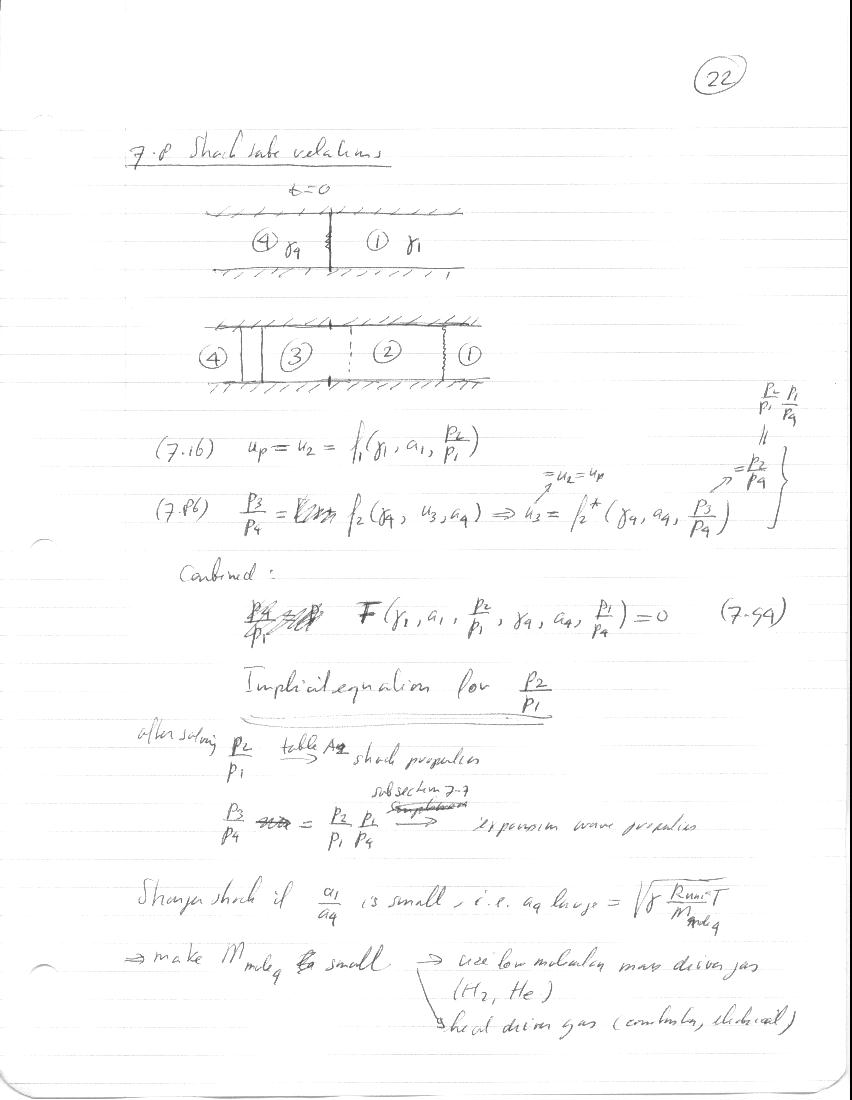 22
7.8 Shock tube relations
t=0
④ γ4 ① γ1
④ ③ ② ①
p2/p1 p1/p4
=
(7.16) up = u2 = f1(γ1, a1, p2/p1)
= u2 = up
= p2/p4
(7.86) p3/p4 = f2(γ4, u3, a4) ⇒ u3 = f2*(γ4, a4, p3/p4)
Combined :
F(γ1, a1, p2/p1, γ4, a4, p1/p4) = 0 (7.94)
Implicit equation for p2/p1
after solving p2/p1 table A2 → shock properties
subsection 7.7
p3/p4 = p2/p1 p1/p4 → expansion wave properties
Stronger shock if a1/a4 is small, i.e. a4 large = √(γ Runiv T / Mmole4)
⇒ make Mmole4 small → use low molecular mass driver gas
(H2, He)
→ heat driver gas (combustion, electrical)